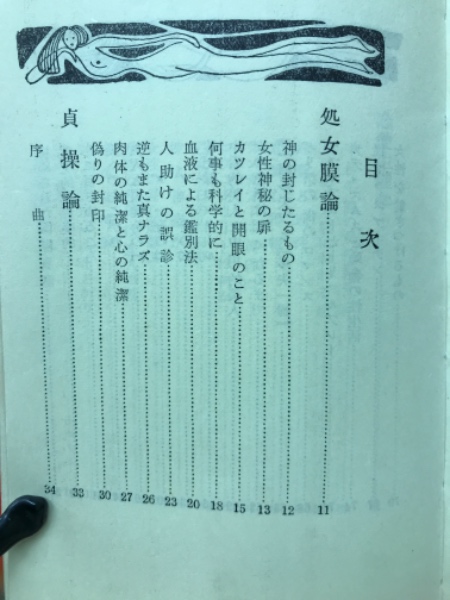 目次
処女膜論 11
神の封じたるもの 12
女性神秘の扉 13
カツレイと開眼のこと 15
何事も科学的に 18
血液による鑑別法 20
人助けの誤診 23
逆もまた真ナラズ 26
肉体の純潔と心の純潔 27
偽りの封印 30
貞操論 33
序曲 34